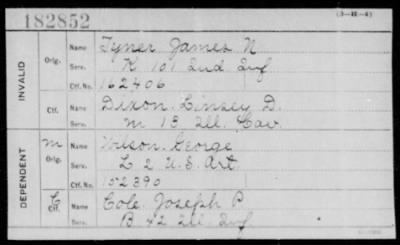 182852
(3-48-4)
INVALID
Orig.
Name Tyner James N
Serv. K 101 Ind Inf
Ctf. No. 162406
Ctf.
Name Dixon, Linsey D.
Serv. M 13 Ill. Cav
DEPENDENT
M
Orig.
Name Wilson, George
Serv. L 2 U.S. Art.
Ctf. No. 152390
C
Ctf.
Name Cole, Joseph P
Serv. B 42 Ill. Inf